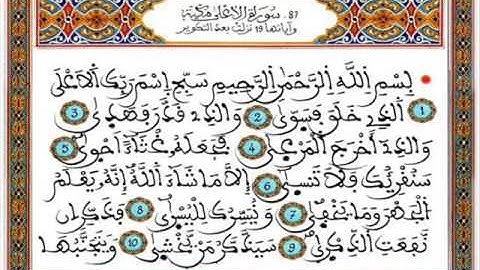 87 - سورة الأعلى مكية
وآياتها 19 نزلت بعد التكوير
بسم الله الرحمن الرحيم سبح اسم ربك الأعلى
1 الذي خلق فسوى 2 والذي قدر فهدى 3
والذي أخرج المرعى 4 فجعله غثاء أحوى 5
سنقرئك فلا تنسى 6 إلا ما شاء الله إنه يعلم
الجهر وما يخفى 7 ونيسرك لليسرى 8 فذكر إن
نفعت الذكرى 9 سيذكر من يخشى 10 ويتجنبها